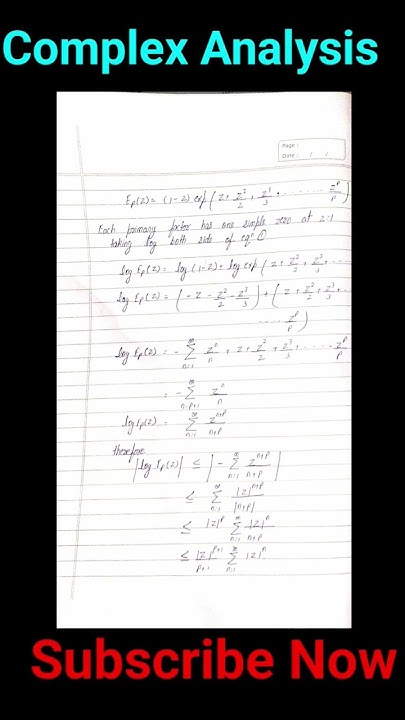 Complex Analysis
Page :
Date : / /
Ep(z) = (1-z) exp(z + z²/2 + z³/3 + ------ z^p/p)
Each primary factor has one simple zero at z=1
taking log both side of eqⁿ ①
log Ep(z) = log(1-z) + log exp(z + z²/2 + z³/3 + ---
log Ep(z) = (-z - z²/2 - z³/3) + (z + z²/2 + z³/3 + --
---- z^p/p)
log Ep(z) = - ∑_{n=1}^∞ z^n/n + z + z²/2 + z³/3 + ---- z^p/p
= - ∑_{n=p+1}^∞ z^n/n
log Ep(z) = ∑_{n=1}^∞ z^{n+p}/n+p
therefore
|log Ep(z)| ≤ |- ∑_{n=1}^∞ z^{n+p}/n+p|
≤ ∑_{n=1}^∞ |z|^{n+p}/|n+p|
≤ |z|^p ∑_{n=1}^∞ |z|^n/n+p
≤ |z|^{p+1}/p+1 ∑_{n=1}^∞ |z|^n
Subscribe Now